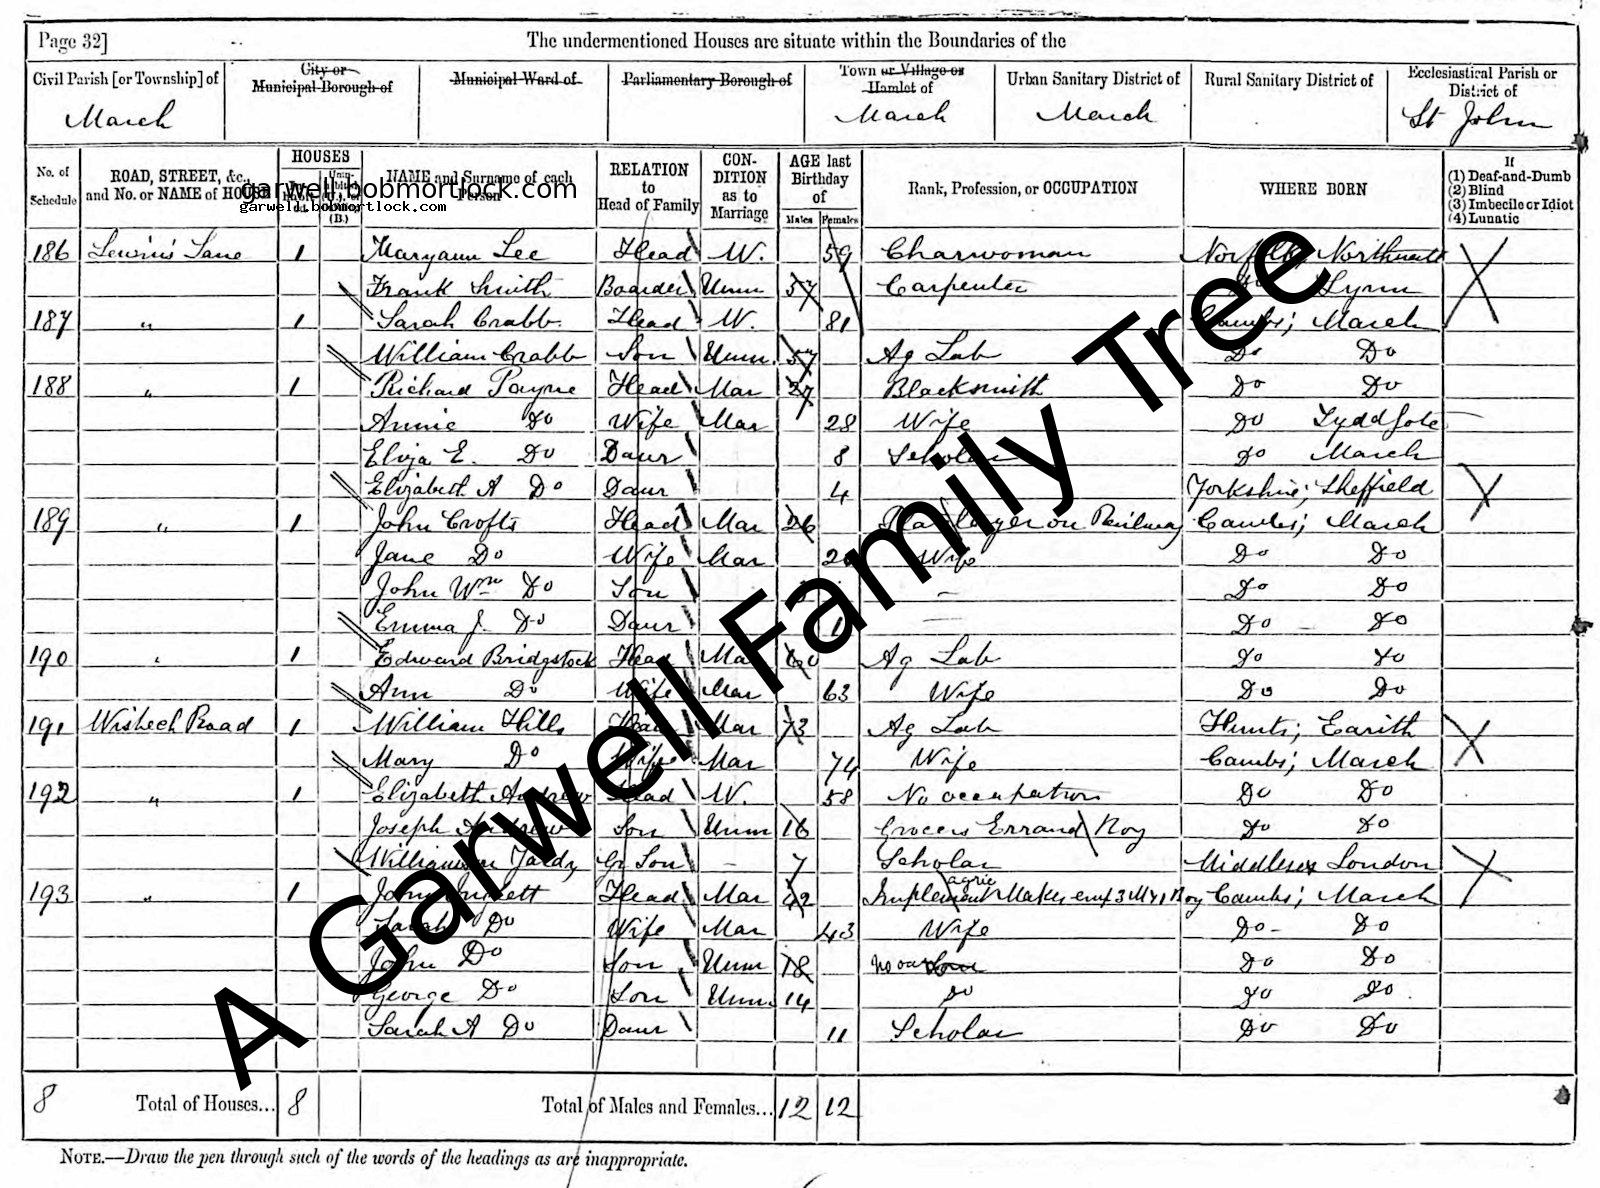 Page 32] The undermentioned Houses are situate within the Boundaries of the
Civil Parish [or Township] of City or Municipal Borough of Municipal Ward of Parliamentary Borough of Town or Village or Hamlet of Urban Sanitary District of Rural Sanitary District of Ecclesiastical Parish or District of
March March March St John
No. of Schedule ROAD, STREET, &c., and No. or NAME of HOUSE HOUSES (B.) NAME and Surname of each Person RELATION to Head of Family CONDITION as to Marriage AGE last Birthday of Males Females Rank, Profession, or OCCUPATION WHERE BORN If (1) Deaf-and-Dumb (2) Blind (3) Imbecile or Idiot (4) Lunatic
garwell.bobmortlock.com
garwell.bobmortlock.com
186 Lane 1 Maryann Lee Head W. 59 Charwoman Norfolk,
Frank Smith Boarder Unm 57 Carpenter Do Lynn
187 " 1 Sarah Crabb Head W. 81 Cambs; March
William Crabb Son Unm. 57 Ag Lab Do Do
188 " 1 Richard Payne Head Mar 27 Blacksmith Do Do
Annie Do Wife Mar 28 Wife Do
Eliza E. Do Daur 8 Scholar Do March
Elizabeth A Do Daur 4 Yorkshire; Sheffield
189 " 1 John Crofts Head Mar 26 on Railway Cambs; March
Jane Do Wife Mar Wife Do Do
John Wm Do Son – Do Do
Emma J. Do Daur 1 Do Do
190 " 1 Edward Bridgstock Head Mar 60 Ag Lab Do Do
Ann Do Wife Mar 63 Wife Do Do
191 Wisbech Road 1 William Hills Head Mar 73 Ag Lab Hunts; Earith
Mary Do Wife Mar 74 Wife Cambs; March
192 " 1 Elizabeth Andrew Head W. 58 No occupation Do Do
Joseph Andrew Son Unm 16 Grocers Errand Boy Do Do
Gr Son – 7 Scholar Middlesex London
193 " 1 John Head Mar 42 Implement agric Maker emp 3 M & 1 Boy Cambs; March
Sarah Do Wife Mar 43 Wife Do - Do
John Do Son Unm 18 Do Do
George Do Son Unm. 14 Do Do Do
Sarah A Do Daur 11 Scholar Do Do
8 Total of Houses... 8 Total of Males and Females... 12 12
NOTE.—Draw the pen through such of the words of the headings as are inappropriate.
A Garwell Family Tree